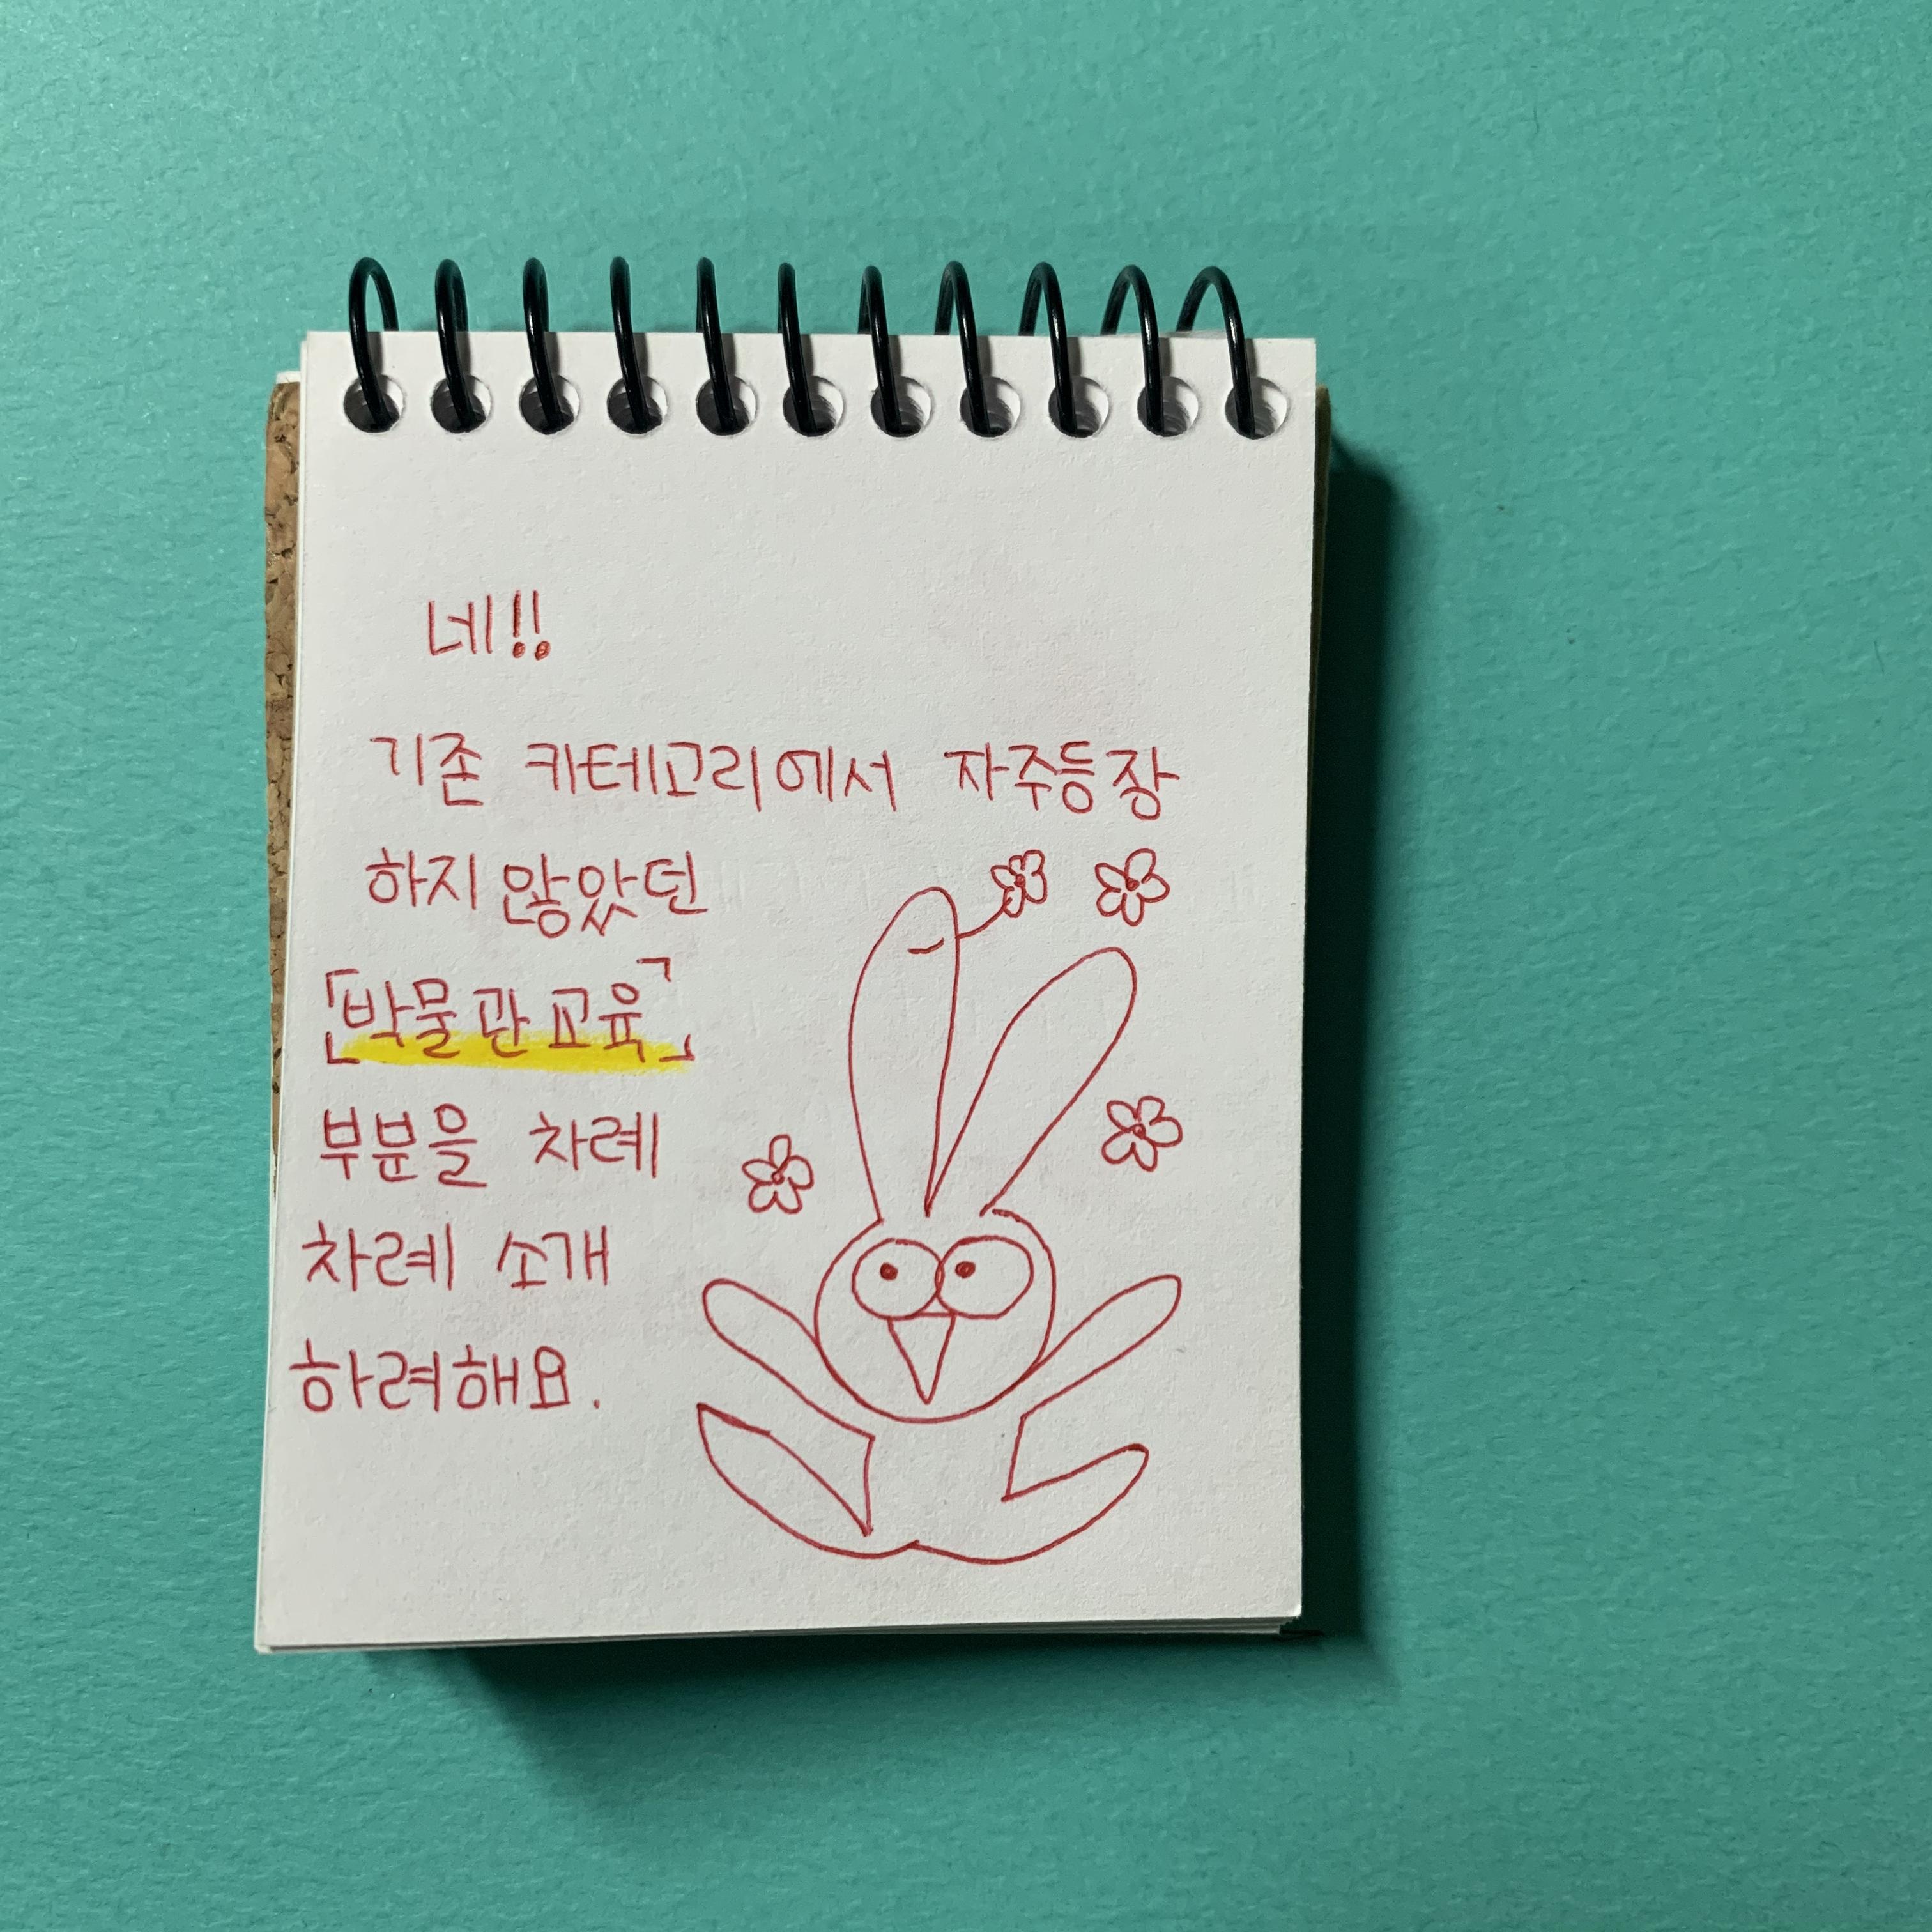 네!!
기존 카테고리에서 자주등장
하지 않았던
「박물관교육」
부분을 차례
차례 소개
하려해요.